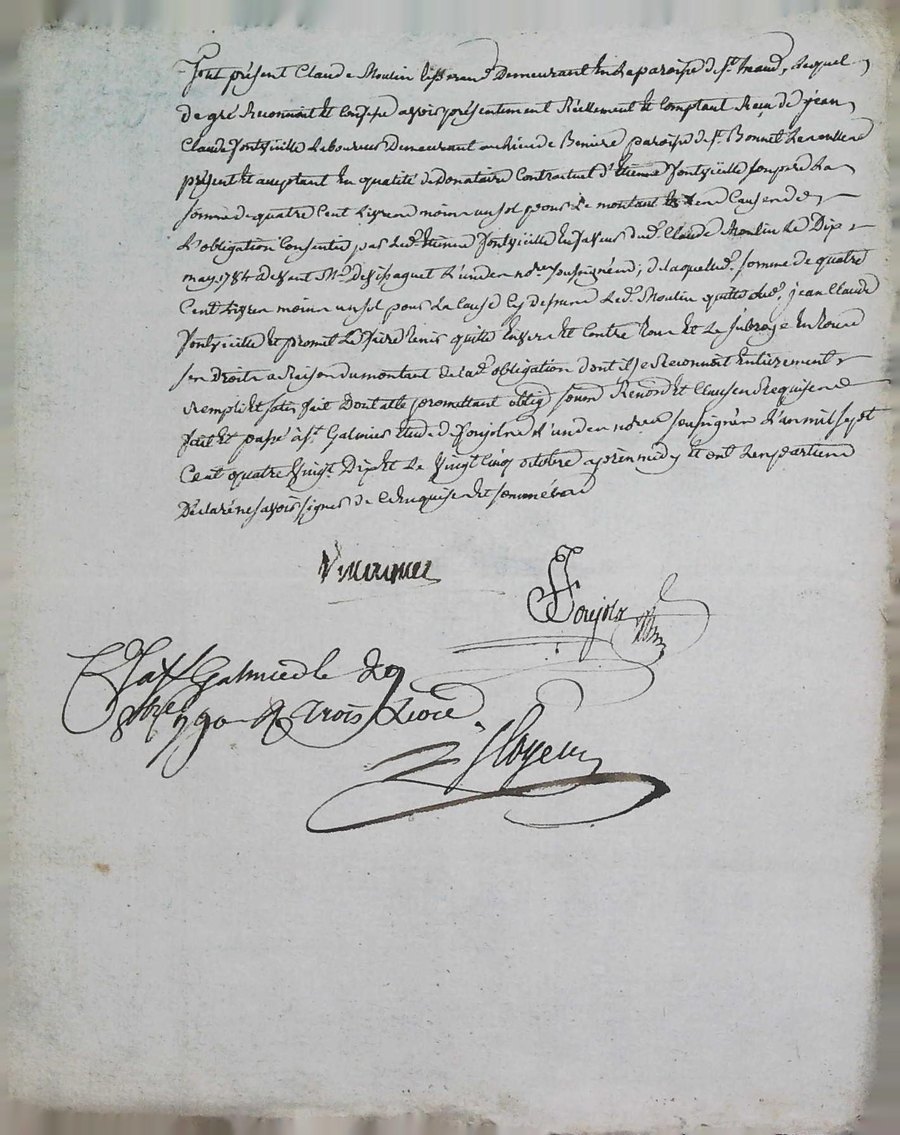 fut présent Claude Moulin tisserand Demeurant En la paroisse de St. , Lequel
de gré Reconnoit et Confesse avoir présentement Réellement et Comptant Reçu de jean
Claude fontvieille Laboureur Demeurant au lieu de paroisse de St. Bonnet
présent et acceptant En qualité de Donataire Contractuel d'Etienne fontvieille son pere La
somme de quatre Cent Livres moins un sol pour Le montant Les Causes de
L'obligation Consentie par Led. Etienne fontvieille En faveur dud. Claude Moulin Le Dix
may 1784 devant Me. L'un des nores soussignés; de laquelle somme de quatre
Cent Livres moins un sol pour La Cause Cy dessus Led. Moulin quitte dud. jean Claude
fontvieille Et promet Le faire tenir quitte Envers Et Contre tous Et Le subroge En tous
ses Droits a Raison du montant de lad. obligation dont il se Reconnoit Entierement
Rempli et satisfait Dont acte promettant oblig soum Renond Et Clauses Requises
fait et passé à St. Galmier Etude de foujols L'un des nores soussignés L'an mil sept
Cent quatre Vingt Dix et Le Vingt Cinq octobre après midy et ont Les parties
Déclaré ne savoir signer de ce Enquises Et sommées
foujols
à St Galmier le 29
8bre 1790 R trois Livres